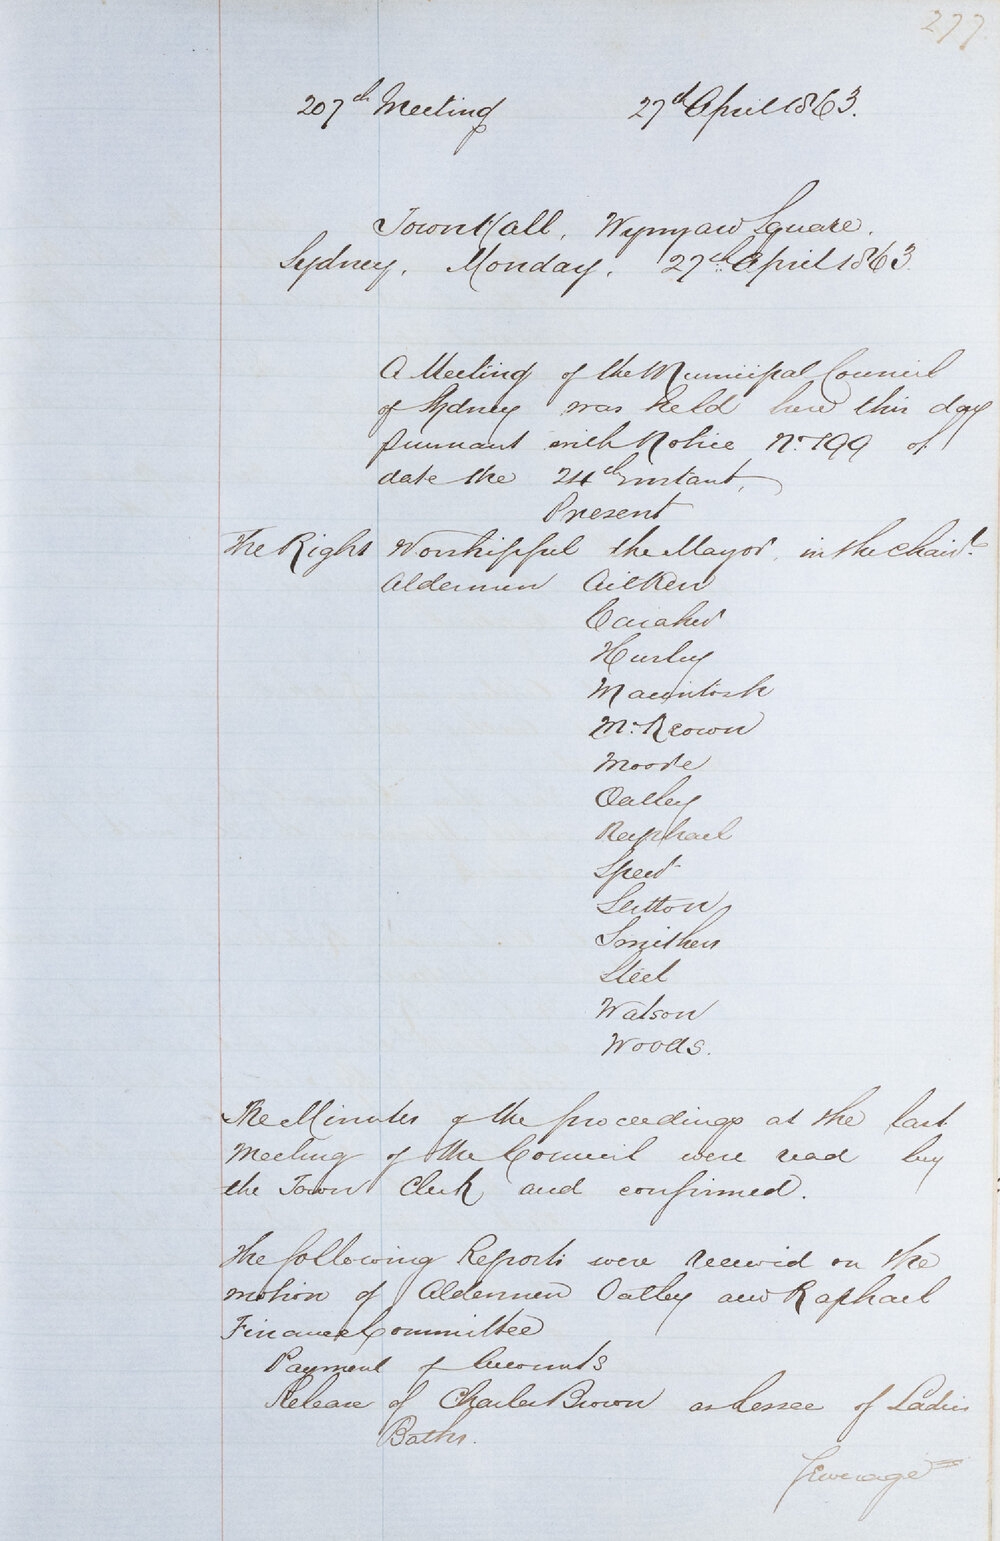 277
207th Meeting 27th April 1863.
Town Hall, Wynyard Square.
Sydney, Monday, 27th April 1863
A Meeting of the Municipal Council
of Sydney was held here this day
pursuant with Notice No. 199 of
date the 24th instant,
Present
The Right Worshipful the Mayor, in the chair.
Aldermen Aitken
Caraher
Hurley
Macintosh
McKeown
Moore
Oatley
Raphael
Speer
Sutton
Smithers
Steel
Watson
Woods.
The Minutes of the proceedings at the last
Meeting of the Council were read by
the Town Clerk and confirmed.
The following Reports were received on the
motion of Aldermen Oatley and Raphael
Finance Committee
Payment of Accounts
Release of Charles Brown as Lessee of Ladies
Baths.
Sewerage